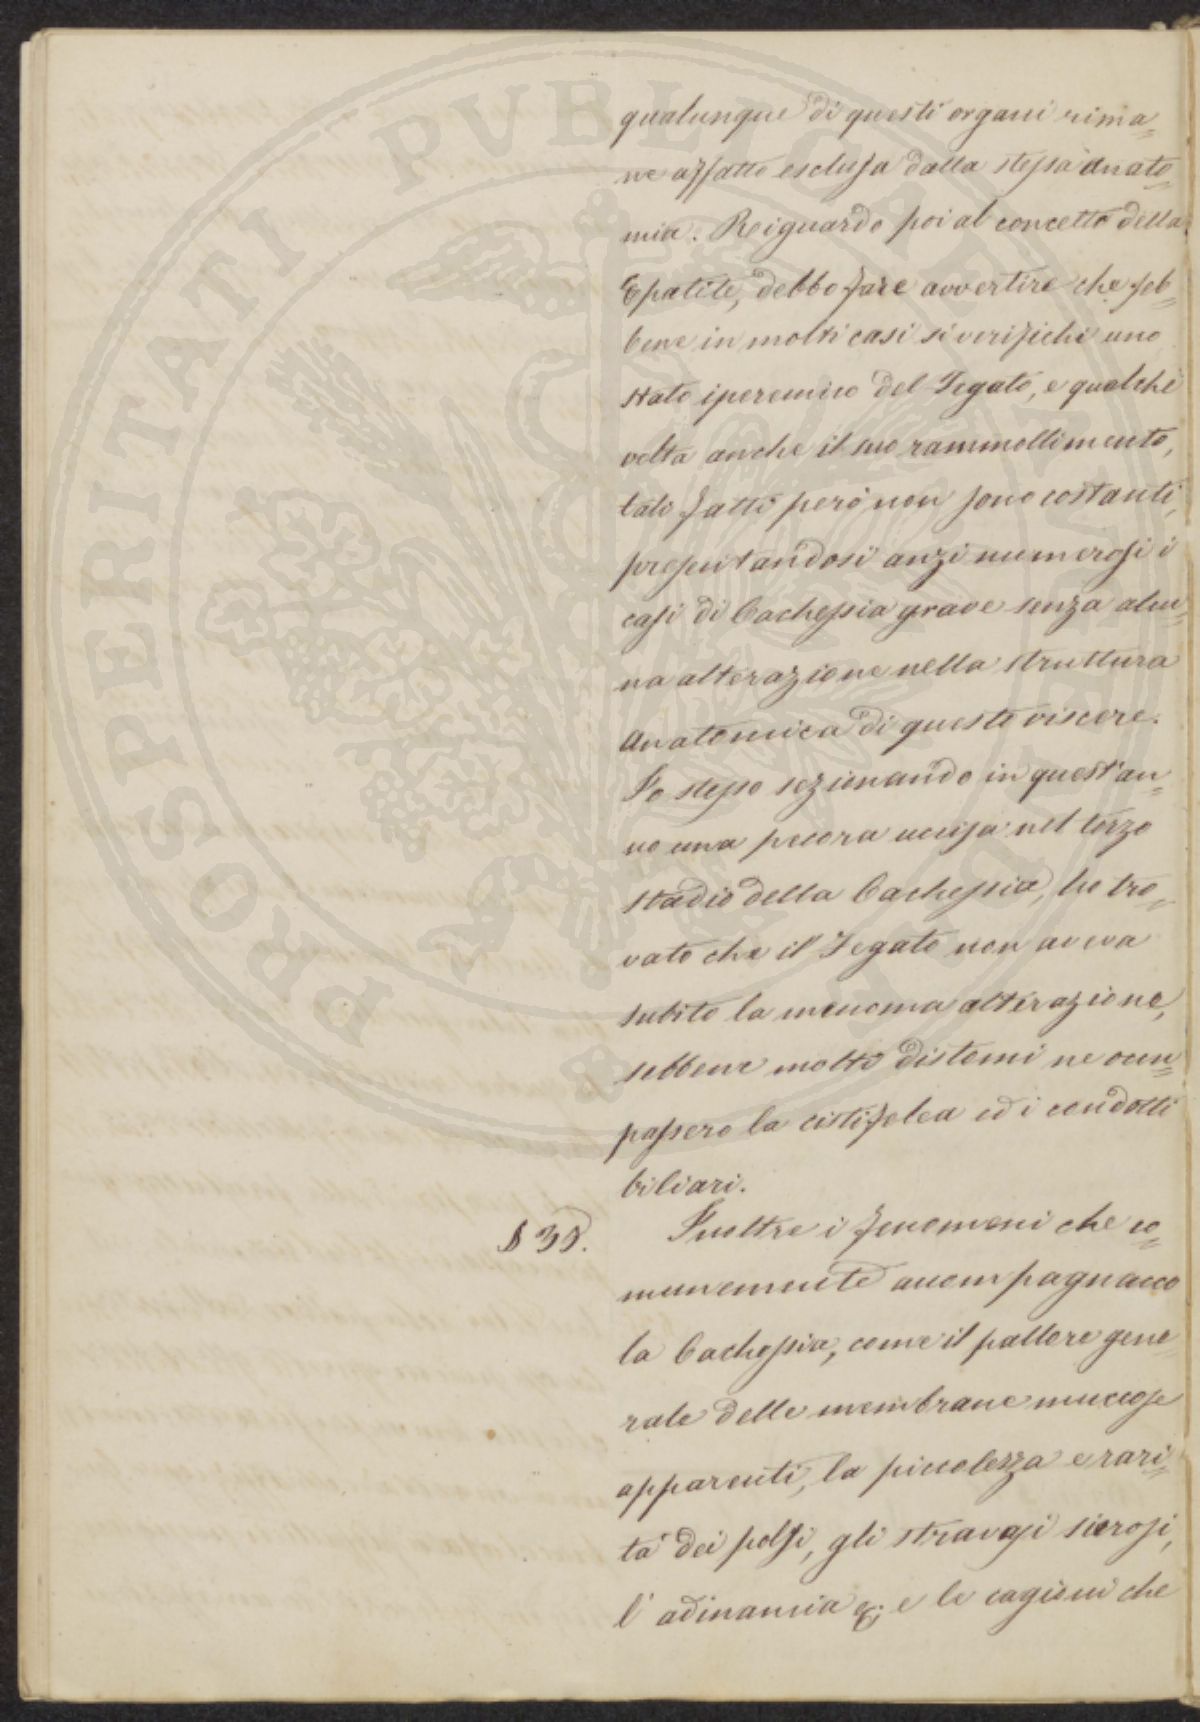 qualunque di questi organi rima=
ne affatto esclusa dalla stessa anato=
mia. Reiguardo poi al concetto della
Epatite, debbo fare avvertire che seb=
bene in molti casi si verifichi uno
stato iperemico del Fegato, e qualche
volta anche il suo rammollimento,
tali fatti però non sono costanti,
presentandosi anzi numerosi i
casi di Cachessia grave senza alcu=
na alterazione nella struttura
Anatomica di questo viscere.
Io stesso sezionando in quest'an=
no una pecora uccisa nel terzo
stadio della Cachessia, ho tro=
vato che il Fegato non aveva
subito la menoma alterazione,
sebbene molti distomi ne occu=
passero la cistifelea ed i condotti
biliari.
§ 38. Inoltre i fenomeni che co=
munemente accompagnano
la Cachessia, come il pallore gene=
rale delle membrane muccose
apparenti, la piccolezza e rari=
tà dei polsi, gli stravasi sierosi,
l'adinamia &; e le cagioni che
PROSPERITATI PVBLICAE